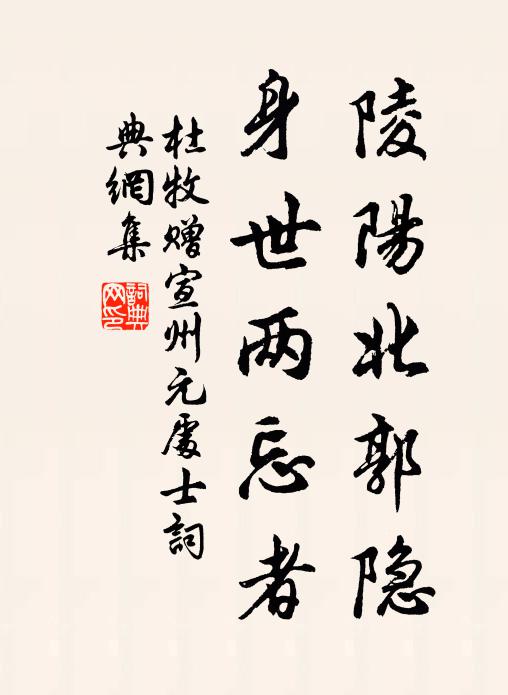 陵陽北郭隐
身世两忘者
杜牧赠宣州元處士詞
典網集
詞典
网印